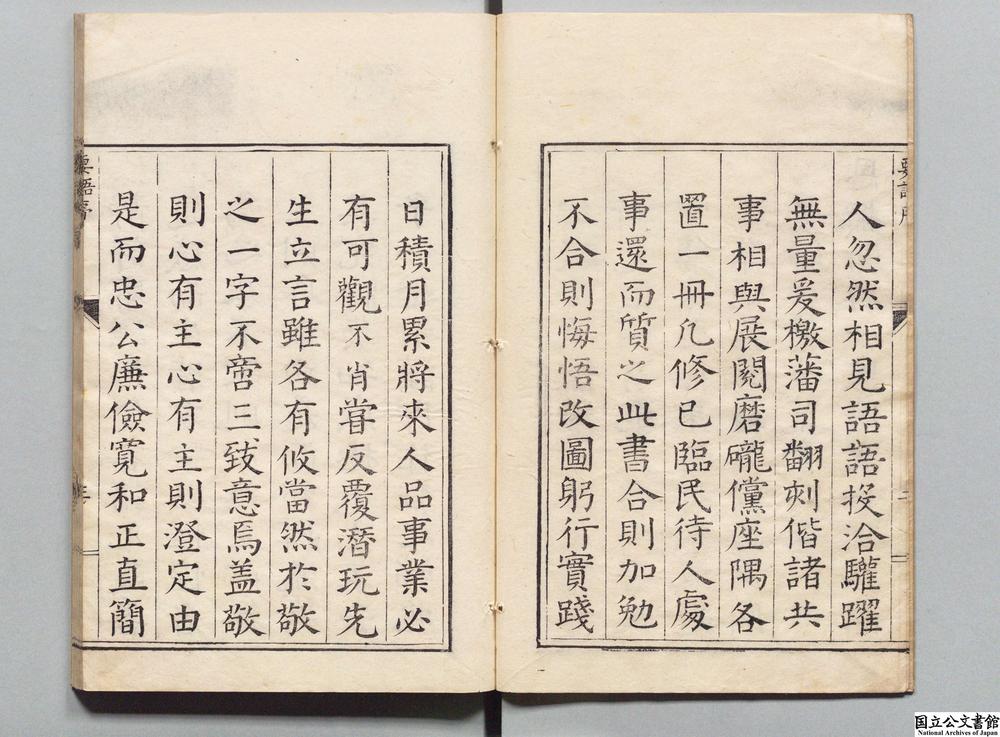 人忽然相見語語投洽驩躍
無量爰檄藩司翻刺偕諸共
事相與展閱磨礲儻座隅各
置一冊凡修己臨民待人處
事還而質之此書合則加勉
不合則悔悟改圖躬行實踐
日積月累將來人品事業必
有可觀不肖嘗反覆潛玩先
生立言雖各有攸當然於敬
之一字不啻三致意焉盖敬
則心有主心有主則澄定由
是而忠公廉儉寬和正直簡
要語序
三
国立公文書館
National Archives of Japan